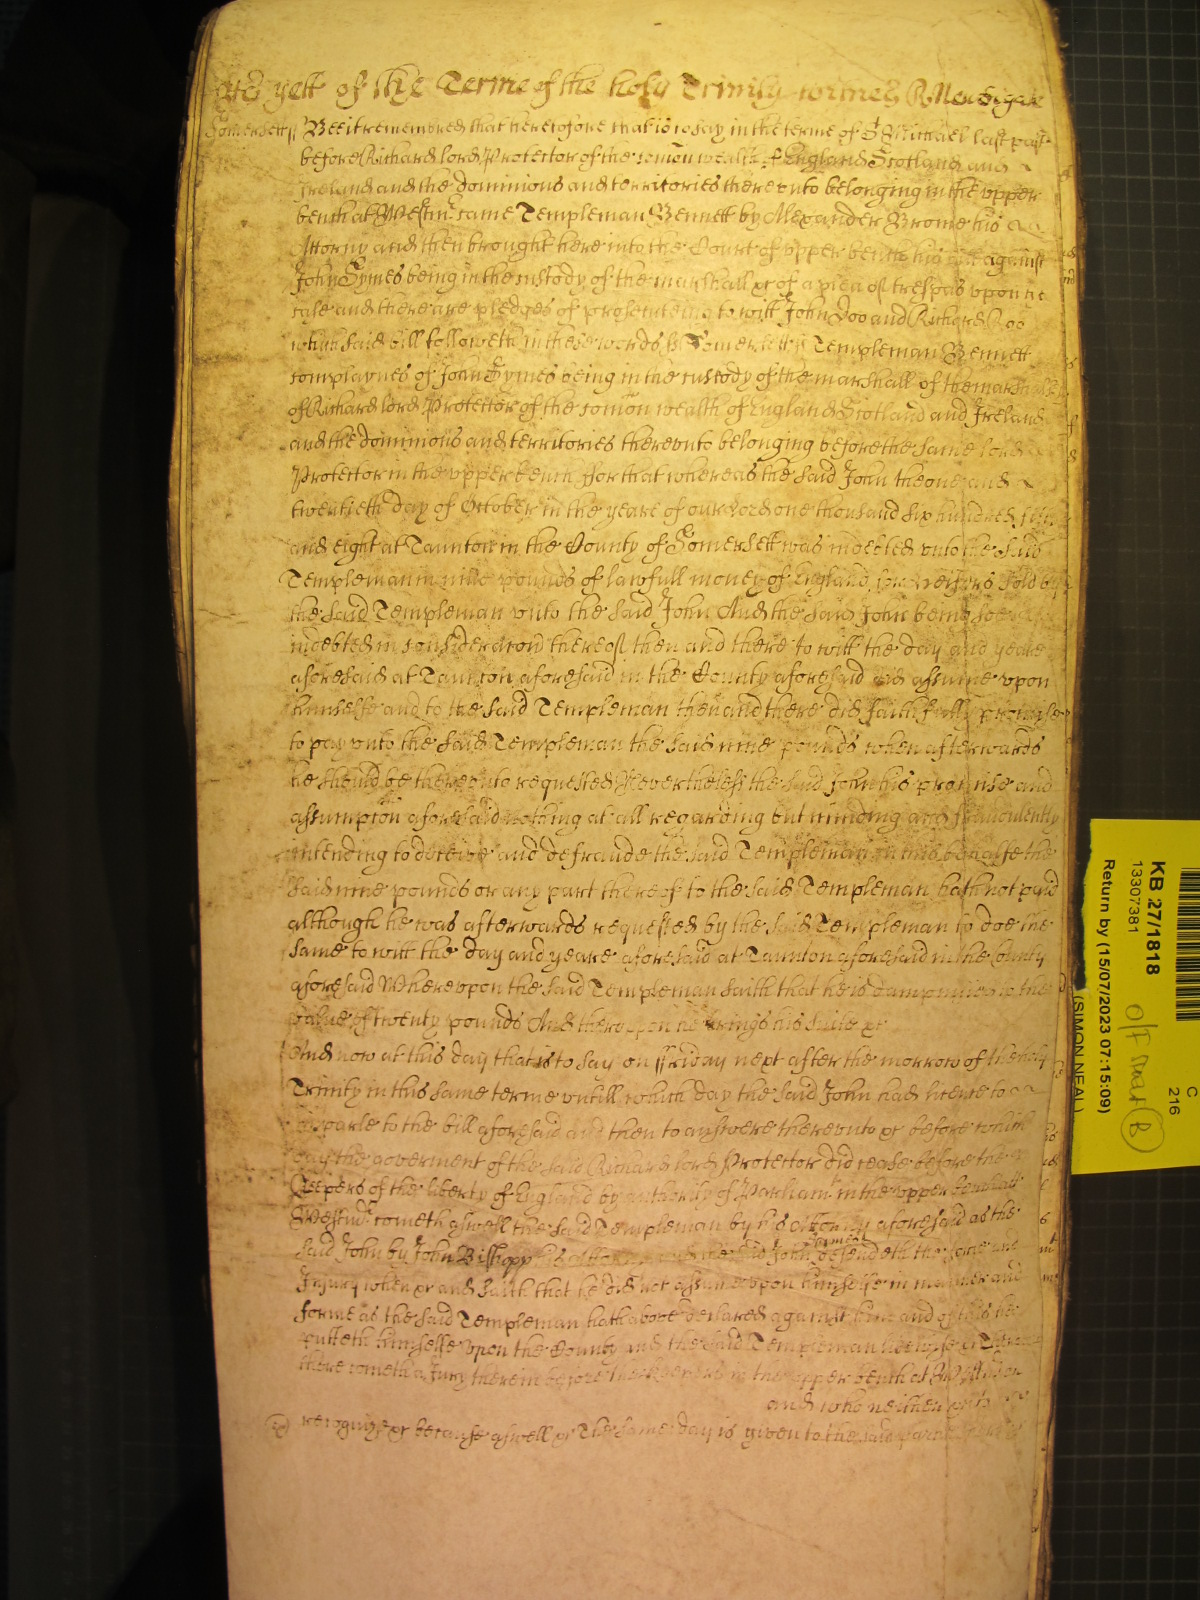 As yett of the Terme of the holy Trinity witnes R Newdigate
Somersett Bee it remembred that heretofore that is to say in the terme of St Michael last past
before Richard lord Protector of the comon wealth of England Scotland and
Ireland and the dominions and territories there unto belonging in the upper
bench at Westmr came Templeman Bennett by Alexander Brome his
Attorny and then brought here into the Court of upper bench his bill against
John Symes being in the custody of the marshall &c of a plea of trespas upon the
case and there are pledges of prosecuteing to witt John Doo and Richard Roo
which said bill followeth in these words ss Somersett ss Templeman Bennett
complaynes of John Symes being in the custody of the marshall of the marshalsey
of Richard lord Protector of the comon wealth of England Scotland and Ireland
and the dominions and territories thereunto belonging before the same lord
Protector in the upper bench ffor that whereas the said John the one and
twentieth day of October in the yeare of our Lord one thousand six hundred fifty
and eight at Taunton in the County of Somersett was indebted unto the said
Templeman in nine pounds of lawfull money of England for sold by
the said Templeman unto the said John And the said John being soe
indebted in consideracon thereof then and there to witt the day and yeare
aforesaid at Taunton aforesaid in the County aforesaid did assume upon
himselfe and to the said Templeman then and there did faithfully promise
to pay unto the said Templeman the said nine pounds when afterwards
he should be thereunto requested Neverthelesse the said John his promise and
assumpcon aforesaid nothing at all regarding but minding and fraudulently
intending to deceive and defraude the said Templeman in this behalfe the
said nine pounds or any part thereof to the said Templeman hath not paid
although he was afterwards requested by the said Templeman to doe the
same to witt the day and yeare aforesaid at Taunton aforesaid in the County
aforesaid Whereupon the said Templeman saith that he is dampnified to the
value of twenty pounds And thereupon he brings his suite &c
And now at this day that is to say on ffriday next after the morrow of the holy
Trinity in this same terme untill which day the said John had licence to
imparle to the bill aforesaid and then to answere thereunto &c before which
day the goverment of the said Richard lord Protector did cease before the
Keepers of the liberty of England by authority of Parliamt in the upper bench att
Westmr cometh aswell the said Templeman by his attorny aforesaid as the
said John by John Bishopp his attorny and the said John defendeth the force and
Injury when &c and saith that he did not assume upon himselfe in manner and
forme as the said Templeman hath above declared against him and of this he
putteth himselfe upon the County and the said Templeman likewise &c Therefore
there cometh a Jury therein before the Keepers in the upper bench at Westm on
and who neither &c to
recognize &c because aswell &c The same day is given to the said parties there
KB 27/1818
13307381
Return by (15/07/2023 07:15:09)
(SIMON NEAL)
C
216
O/F Map B